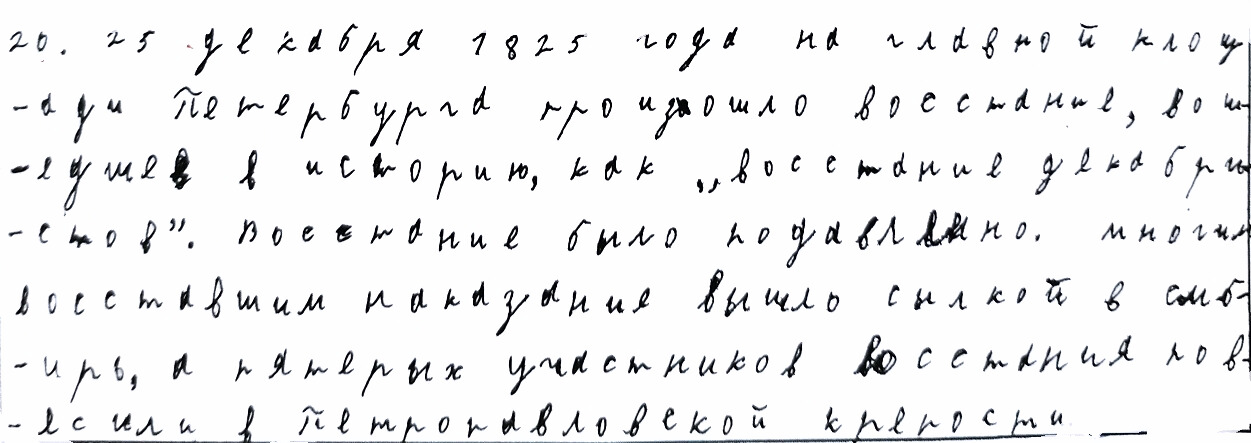 20. 25 декабря 1825 года на главной площ
-ади Петербурга произошло восстание, вош-
-едшее в историю, как „восстание декабри
-стов”. Восстание было подавленно. многим
восставшим наказание вышло сылкой в сиб-
-ирь, а пятерых участников восстания пов-
-есили в Петропавловской крепости